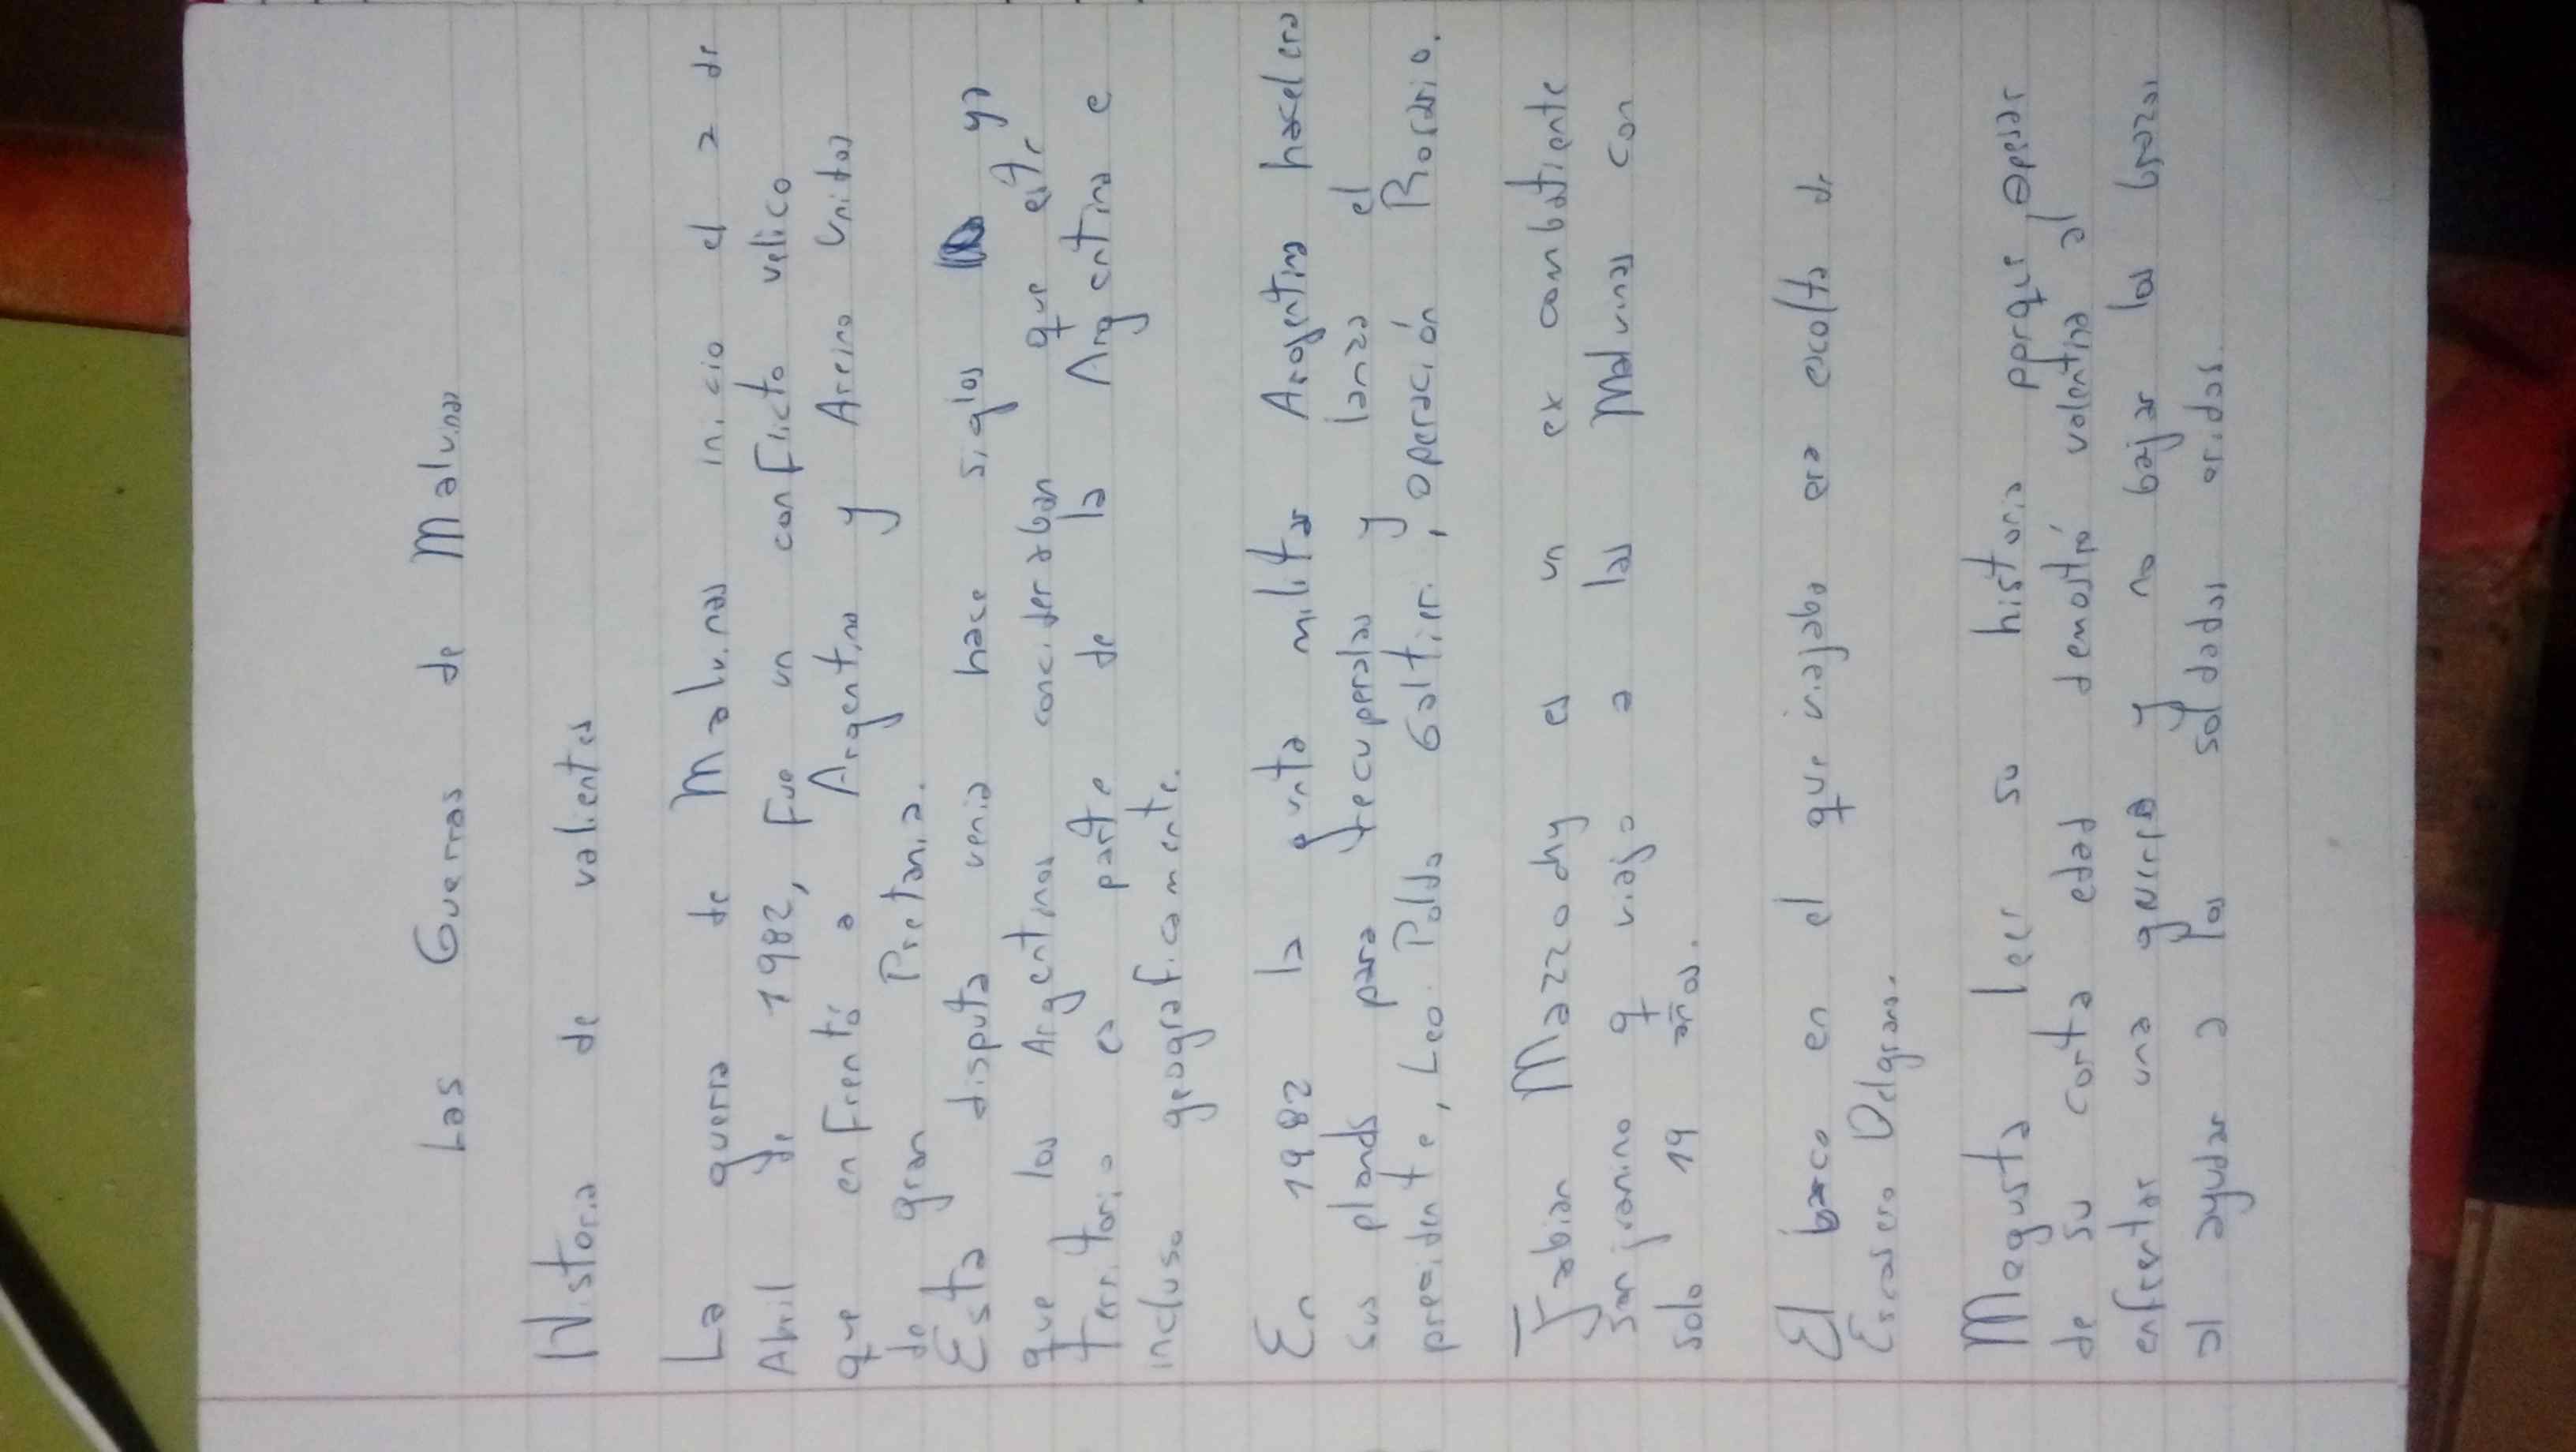 Las Guerras de Malvinas
Historia de valientes
La guerra de Malvinas inicio el 2 de
Abril de 1982, fue un conflicto velico
que enfrentó a Argentina y Areino Unidos
de gran Pretania.
Esta disputa venia hace siglos ya
que los Argentinos concideraban que este
territorio es parte de la Argentina e
incluso geograficamente.
En 1982 la gunta militar Argentina hacelera
sus plands para recuperalas y lanza el
presidente, Leo Poldo Galtieri, operación Rrorario.
Fabian Mazzodhy es un ex combatiente
sanjuanino q viajo a las Malvinas con
solo 19 años.
El barco en el que viajaba era escolta de
Esrasero Delgrano.
Megusta leer su historia porque apesar
de su corta edad demostró valentina al
enfrentar una guerra y no bajar los brazos
al ayudar a los soldados eridos.